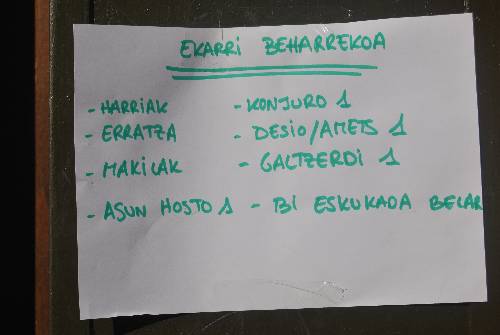 EKARRI BEHARREKOA
- HARRIAK - KONJURO 1
- ERRATZA - DESIO/AMETS 1
- MAKILAK - GALTZERDI 1
- ASUN HOSTO 1 - BI ESKUKADA BELAR